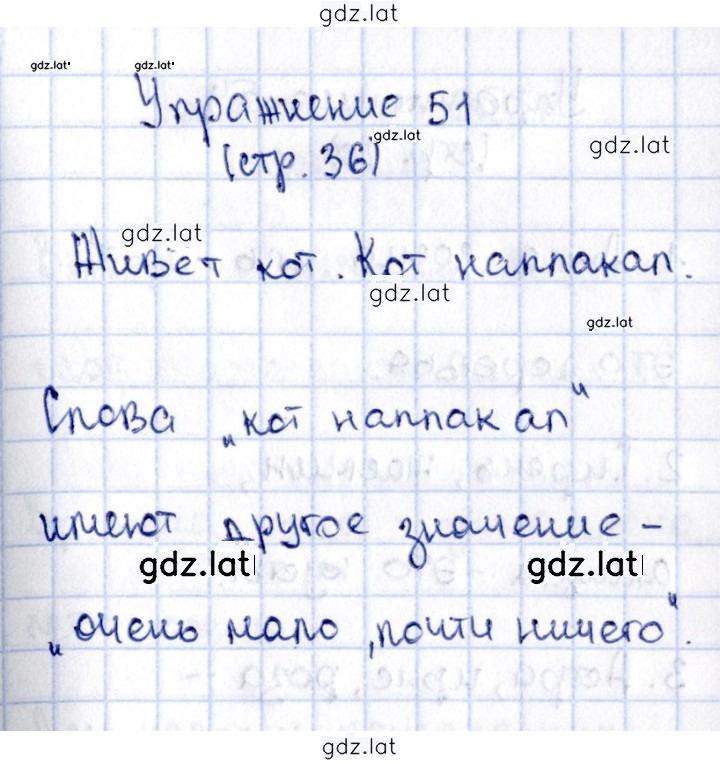 gdz.lat
gdz.lat gdz.lat
Упражнение 51
gdz.lat
(стр. 36)
gdz.lat
gdz.lat
Живёт кот. Кот наплакал.
gdz.lat
gdz.lat
Слова „кот наплакал"
имеют другое значение –
gdz.lat gdz.lat
„очень мало, почти ничего".
gdz.lat